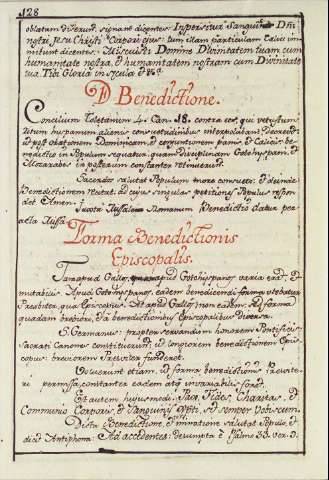 128
oblatum diversum, signans dicentes: Inspersitur Sanguine Dni
nostri Jesu Christi Corpori ejus: tum illam particulam Calici im-
mitunt dicentes: Miscuisti Domine Divinitatem tuam cum
humanitate nostra, & humanitatem nostram cum Divinitate
tua. Tibi Gloria in Secula &c.
D Benedictione.
Concilium Toletanum 4. Can. 18. contra eos, qui vetustum
ritum hispanum alienis consuetudinibus
ut post orationem Dominicam, et conjunctionem panis, et Calicis bene-
dictio in Populum sequatur, quam disciplinam Gothehispani, et
Mozarabes in posterum constanter
Sacerdos salutat Populum more consueto: & deinde
Benedictionem recitat: ad cujus singulas petitiones Populus respon
det Amen:
Juxta Missale Romanum Benedictio datur per-
acta Missa.
Forma Benedictionis
Episcopalis.
Tam apud Gallos, quam apud Gothehispanos varia erat, et
mutabilis. Apud Gothehispanos eadem benedicendi forma utebatur
Presbiter, qua Episcopus: At apud Gallos non eadem, sed forma
quadam breviori, & a benedictionibus Episcopalibus diversa.
S. Germanus: propter servandum honorem Pontificis,
Sacrati Canones constituerunt, ut longiorem benedictionem Epis-
copus: breviorem Presviter funderet.
Voluerunt etiam, ut forma benedictionis Presvite-
ri permissa, constanter eadem atq invariabilis foret.
Et autem hujusmodi: Pax, Fides, Charitas, et
Communio Corporis, et Sanguinis Dni, sit semper Vobiscum.
Dicta Benedictione, et immatione salutat Populum, et
dicit Antiphona: Ad accedentes: desumpta è Psalmo 33. ver. 9.